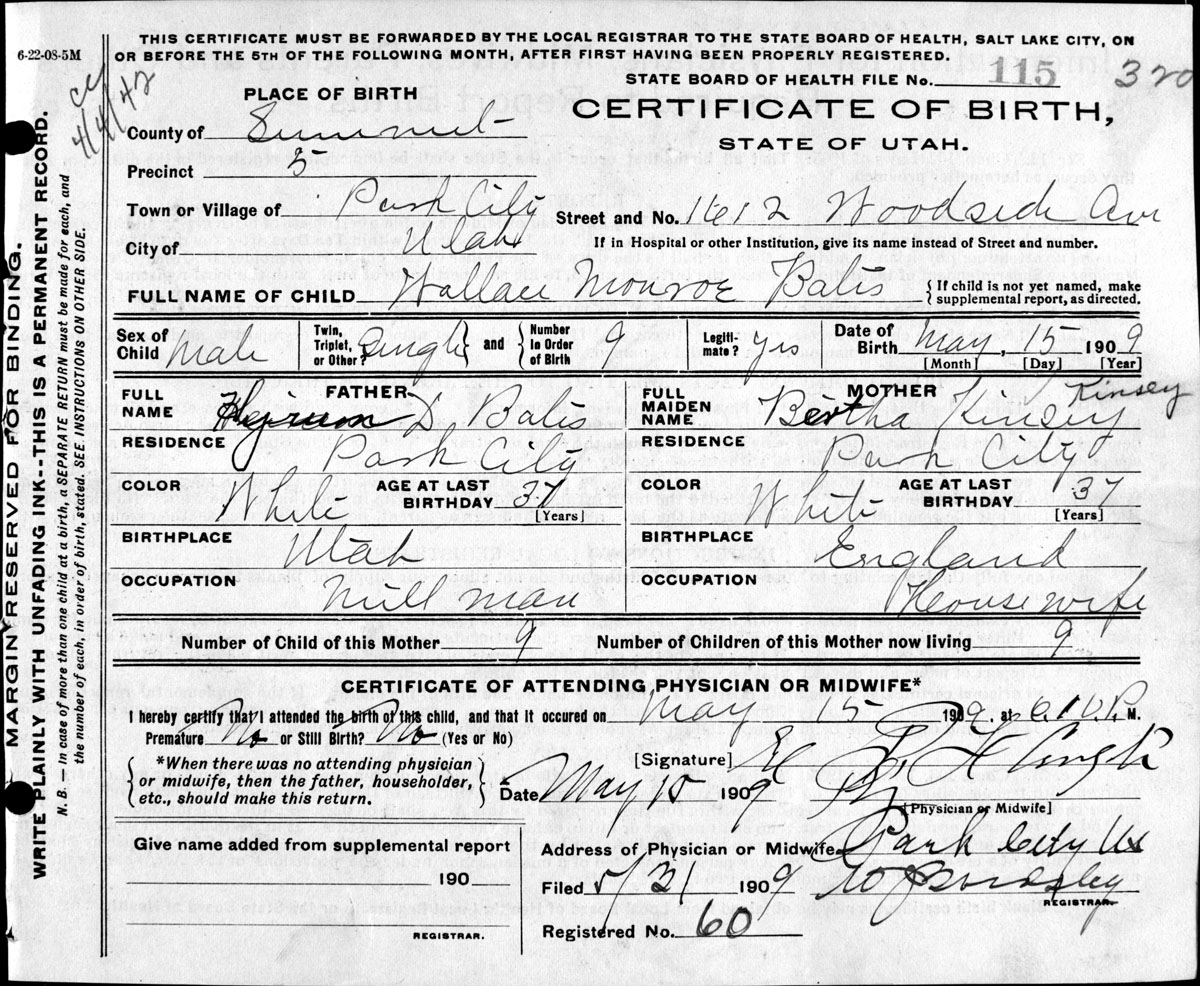 6-22-08-5M
THIS CERTIFICATE MUST BE FORWARDED BY THE LOCAL REGISTRAR TO THE STATE BOARD OF HEALTH, SALT LAKE CITY, ON
OR BEFORE THE 5TH OF THE FOLLOWING MONTH, AFTER FIRST HAVING BEEN PROPERLY REGISTERED.
STATE BOARD OF HEALTH FILE No. 115 320
4/4/42
MARGIN RESERVED FOR BINDING.
WRITE PLAINLY WITH UNFADING INK--THIS IS A PERMANENT RECORD.
N. B. In case of more than one child at a birth, a SEPARATE RETURN must be made for each, and
the number of each, in order of birth, stated. SEE INSTRUCTIONS ON OTHER SIDE.
PLACE OF BIRTH
CERTIFICATE OF BIRTH,
STATE OF UTAH.
County of Summit
Precinct 5
Town or Village of Park City Street and No. 1612 Woodside Ave
City of Utah If in Hospital or other Institution, give its name instead of Street and number.
FULL NAME OF CHILD Wallace Monroe Bates { If child is not yet named, make supplemental report, as directed.
Sex of Child Male Twin, Triplet, or Other? Single and Number in Order of Birth 9 Legiti- mate? yes Date of Birth May, 15 1909
[Month] [Day] [Year]
FATHER MOTHER Kinsey
FULL NAME D Bates FULL MAIDEN NAME Bertha Kinsey
RESIDENCE Park City RESIDENCE Park City
COLOR White AGE AT LAST BIRTHDAY 37 [Years] COLOR White AGE AT LAST BIRTHDAY 37 [Years]
BIRTHPLACE Utah BIRTHPLACE England
OCCUPATION mill man OCCUPATION Housewife
Number of Child of this Mother 9 Number of Children of this Mother now living 9
CERTIFICATE OF ATTENDING PHYSICIAN OR MIDWIFE*
I hereby certify that I attended the birth of this child, and that it occured on May 15 1909. at P. M.
Premature No or Still Birth? No (Yes or No)
[Signature]
*When there was no attending physician
or midwife, then the father, householder,
etc., should make this return.
Date May 15 1909
[Physician or Midwife]
Give name added from supplemental report
190
REGISTRAR.
Address of Physician or Midwife Park City
Filed 5/31 1909
REGISTRAR.
Registered No. 60